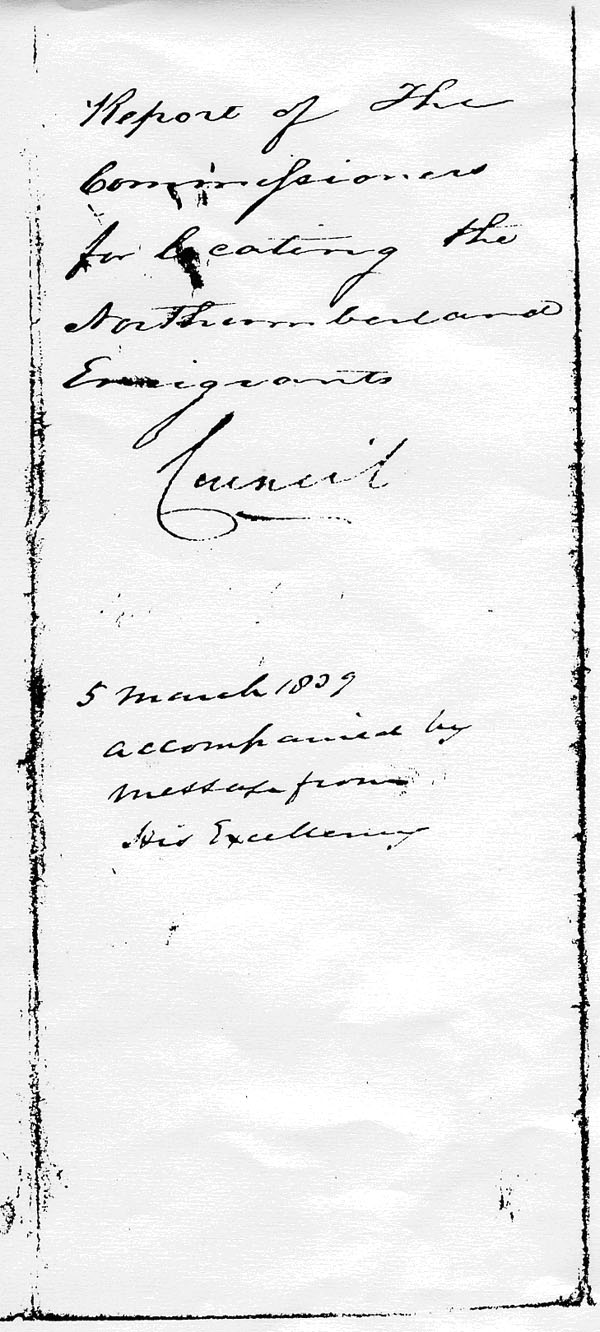 Report of The
Commissioners
for Locating the
Northumberland
Emigrants
Council
5 March 1839
accompanied by
message from
His Excellency